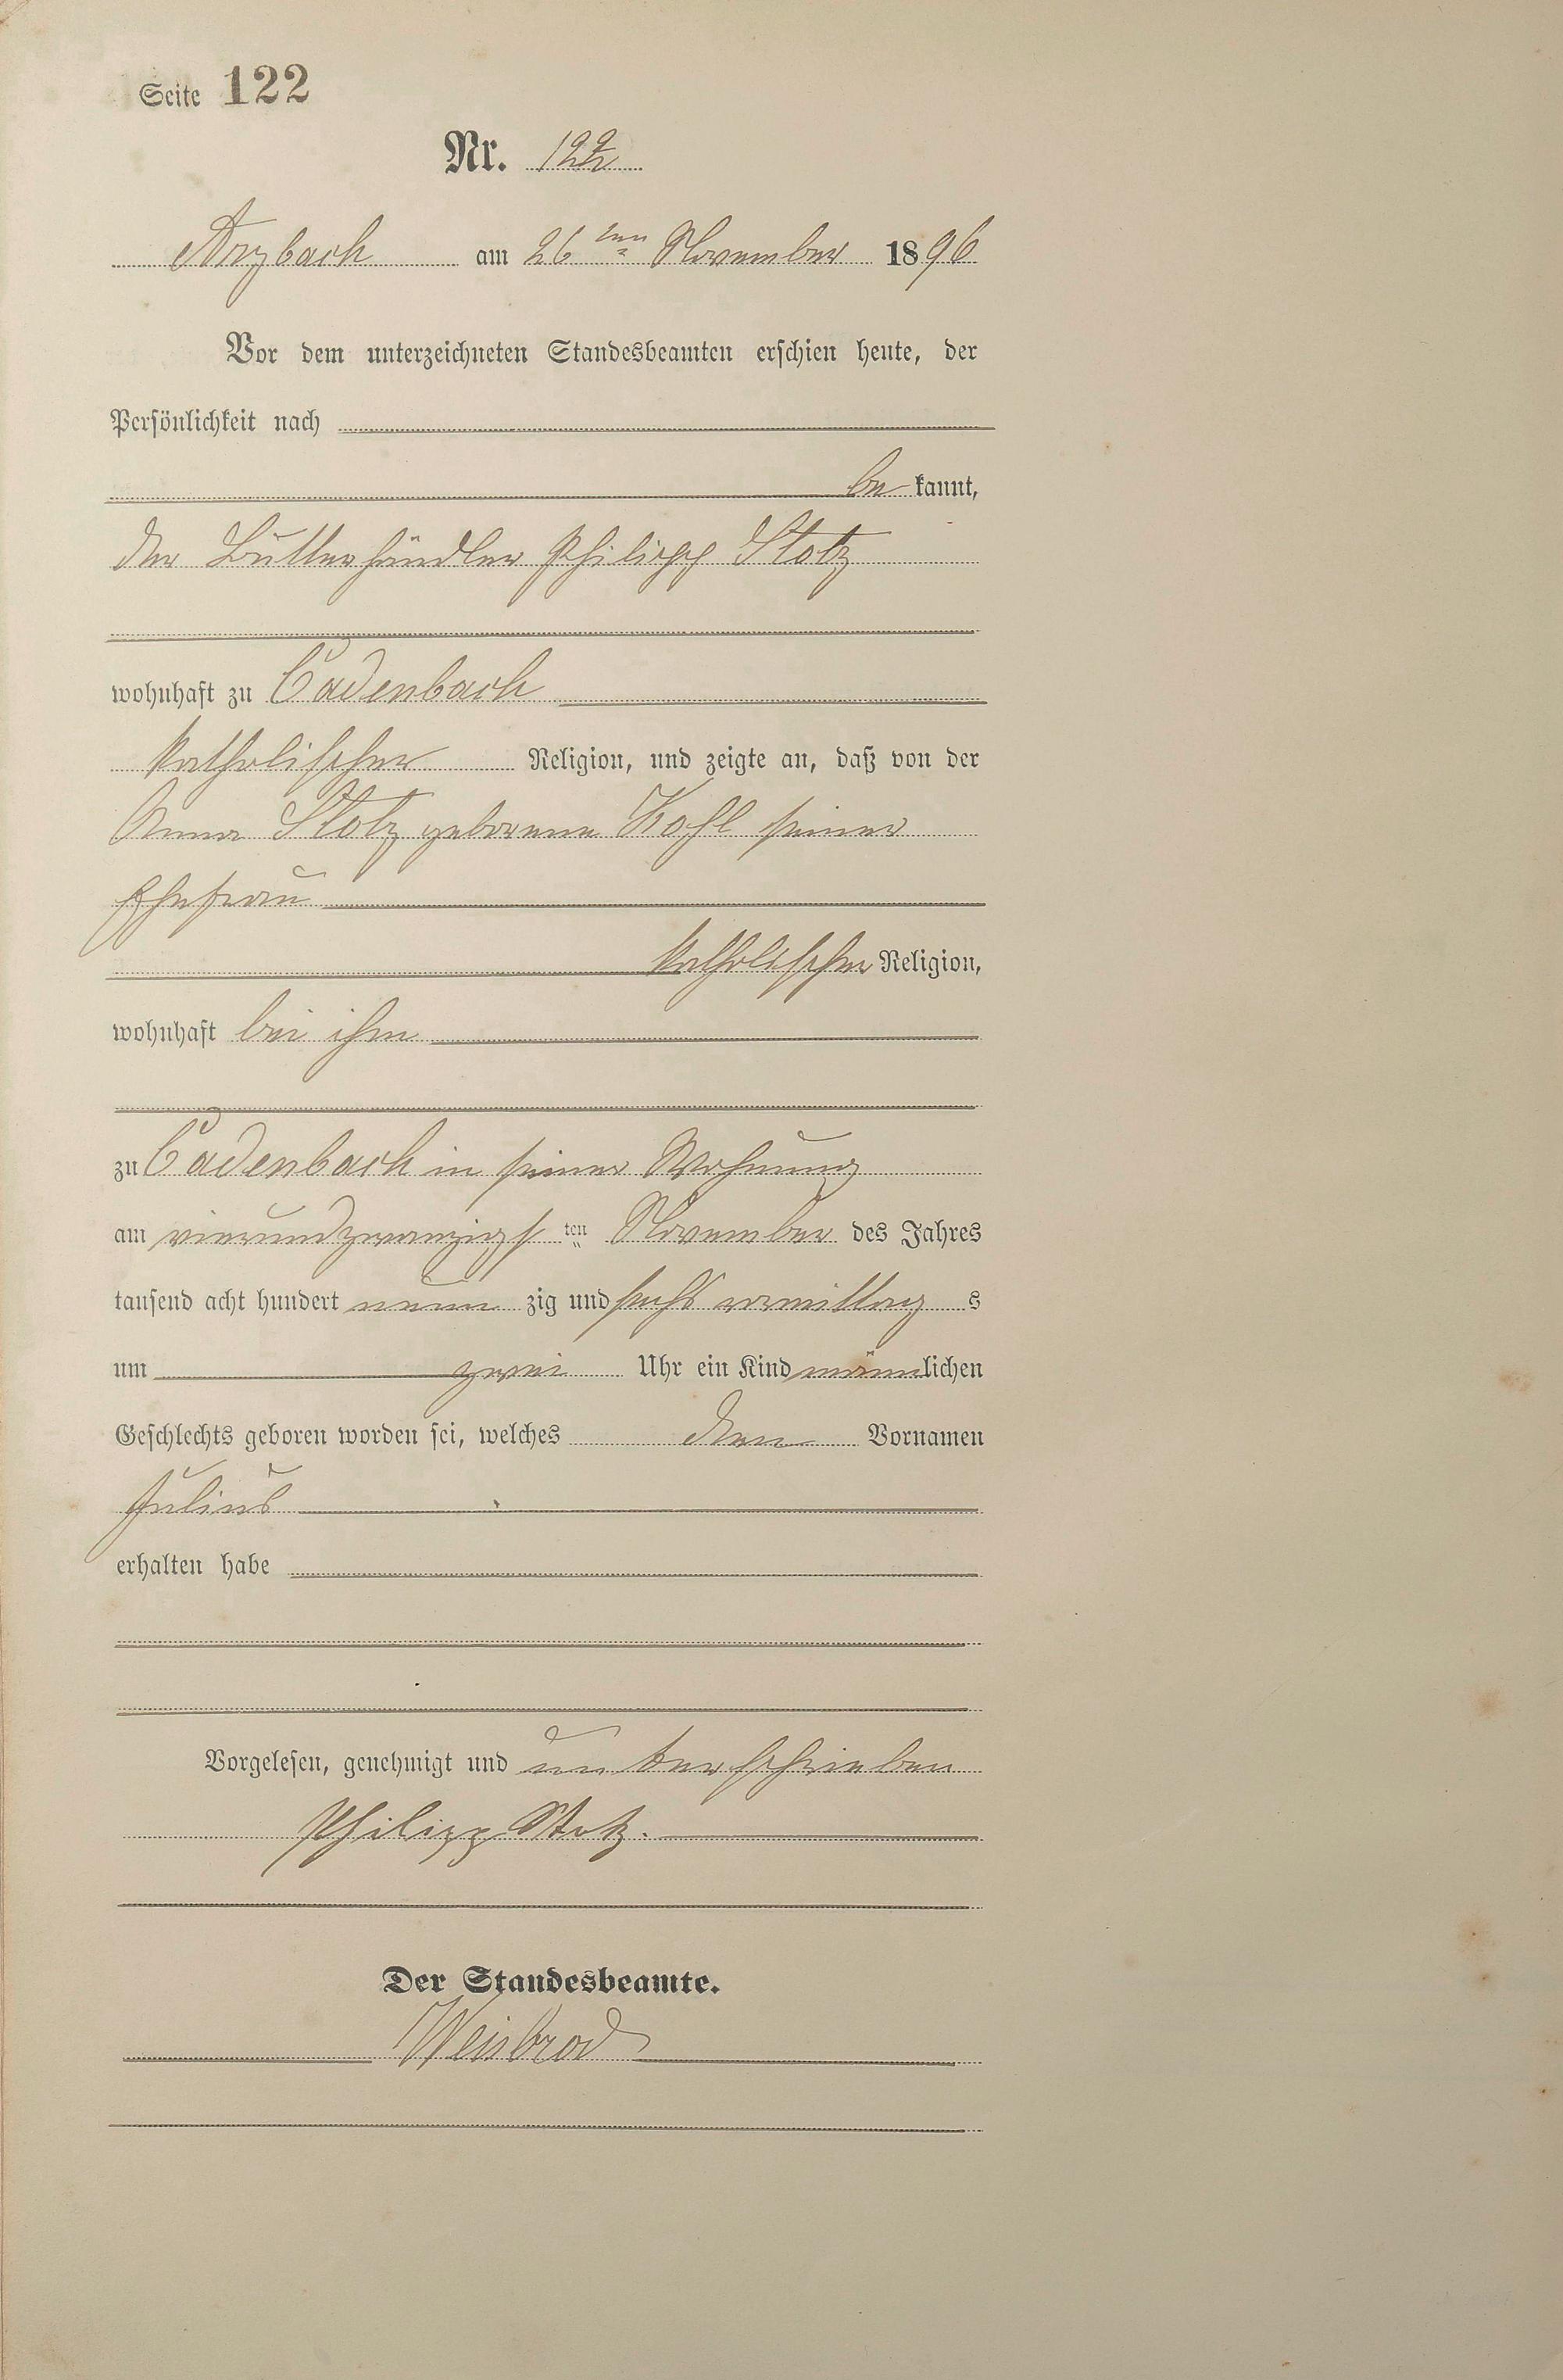 Seite 122
Nr. 122
Arzbach am 26ten November 1896
Vor dem unterzeichneten Standesbeamten erschien heute, der
Persönlichkeit nach
be kannt,
der Butterhändler Philipp Stotz
wohnhaft zu Cadenbach
katholischer Religion, und zeigte an, daß von der
Anna Stotz geborene Kohl seiner
Ehefrau
katholischer Religion,
wohnhaft bei ihm
zu Cadenbach in seiner Wohnung
am vierundzwanzigsten November des Jahres
tausend acht hundert neun zig und sechs vormittag s
um zwei Uhr ein Kind männlichen
Geschlechts geboren worden sei, welches den Vornamen
Julius
erhalten habe
Vorgelesen, genehmigt und unterschrieben
Philipp Stotz.
Der Standesbeamte.
Weisbrod